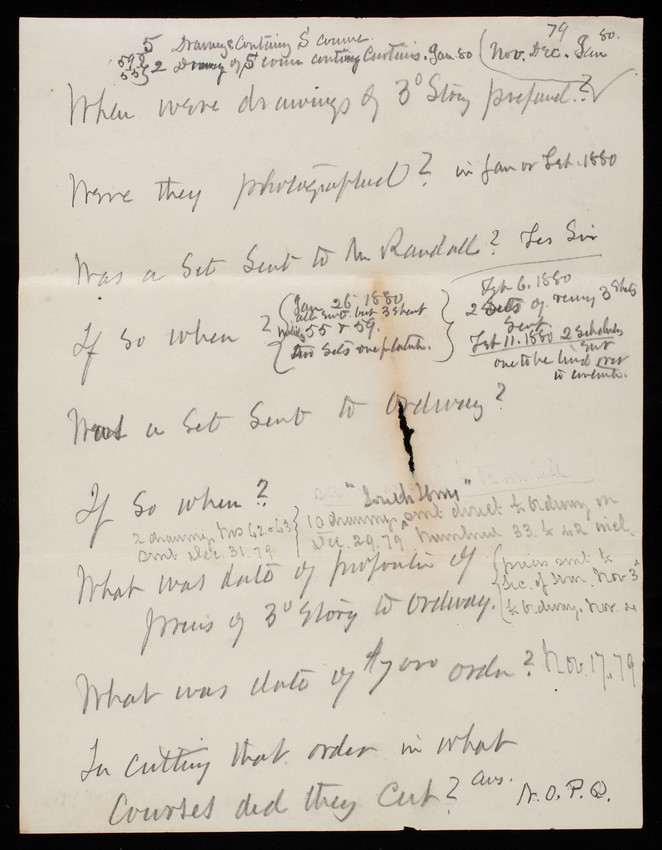 5 Drawings Containing S course.
59 &
55} 2 Drawing of S course containing Curtains. Jan. 80 (Nov. Dec. 79 Jan 80.
When were drawings of 3d Story prepared?
Were they photographed? in Jan or Feb. 1880
Was a Set Sent to Mr Randall? Yes Sir
If So when? Jan 26 1880
all sent but 3 sheets
55 & 59.
two Sets one plate
Feb 6. 1880
2 Sets of remg 3 Shts
Sent.
Feb 11. 1880 2 Schedules
sent
one to be lined over
to
Was a Set Sent to Ordway?
If So when? "South Store"
2 drawings Nos 62 & 63
sent Dec. 31. 79
10 drawings sent direct to Ordway on
Dec. 29. 79 numbered 33. to 42 incl.
What was date of of
prices of 3d Story to Ordway.
prices sent to
Sec. of War. Nov 3d
to Ordway. Nov. 4
What was date of $7000 order? Nov. 17. 79
In cutting that order in what
Courses did they Cut? ans. N. O. P. Q.